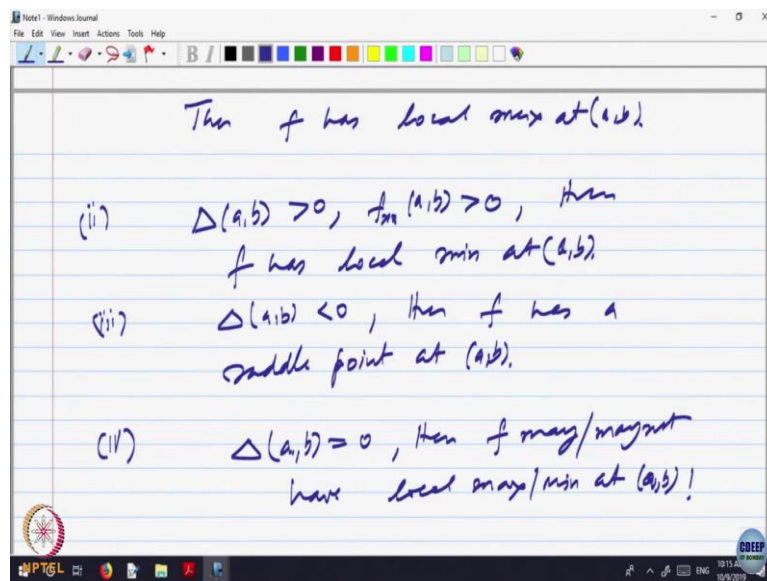 Note1 - Windows Journal
File Edit View Insert Actions Tools Help
B I
Then f has local max at (a,b).
(ii) Δ(a,b) >0, fxx (a,b) >0, then
f has local min at (a,b).
(iii) Δ(a,b) <0, then f has a
saddle point at (a,b).
(iv) Δ(a,b) = 0, then f may/maynot
have local max/min at (a,b)!
NPTEL
CDEEP
IIT BOMBAY
ENG
10:15 AM
10/9/2019